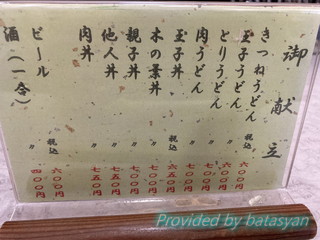 御献立
きつねうどん 税込 六〇〇円
玉子うどん 〃 六〇〇円
とりうどん 〃 七〇〇円
肉うどん 〃 七〇〇円
玉子丼 税込 六五〇円
木の葉丼 〃 七〇〇円
親子丼 〃 七〇〇円
他人丼 〃 七五〇円
肉丼 〃 七五〇円
ビール 税込 六〇〇円
酒(一合) 〃 四〇〇円
Provided by batasyan